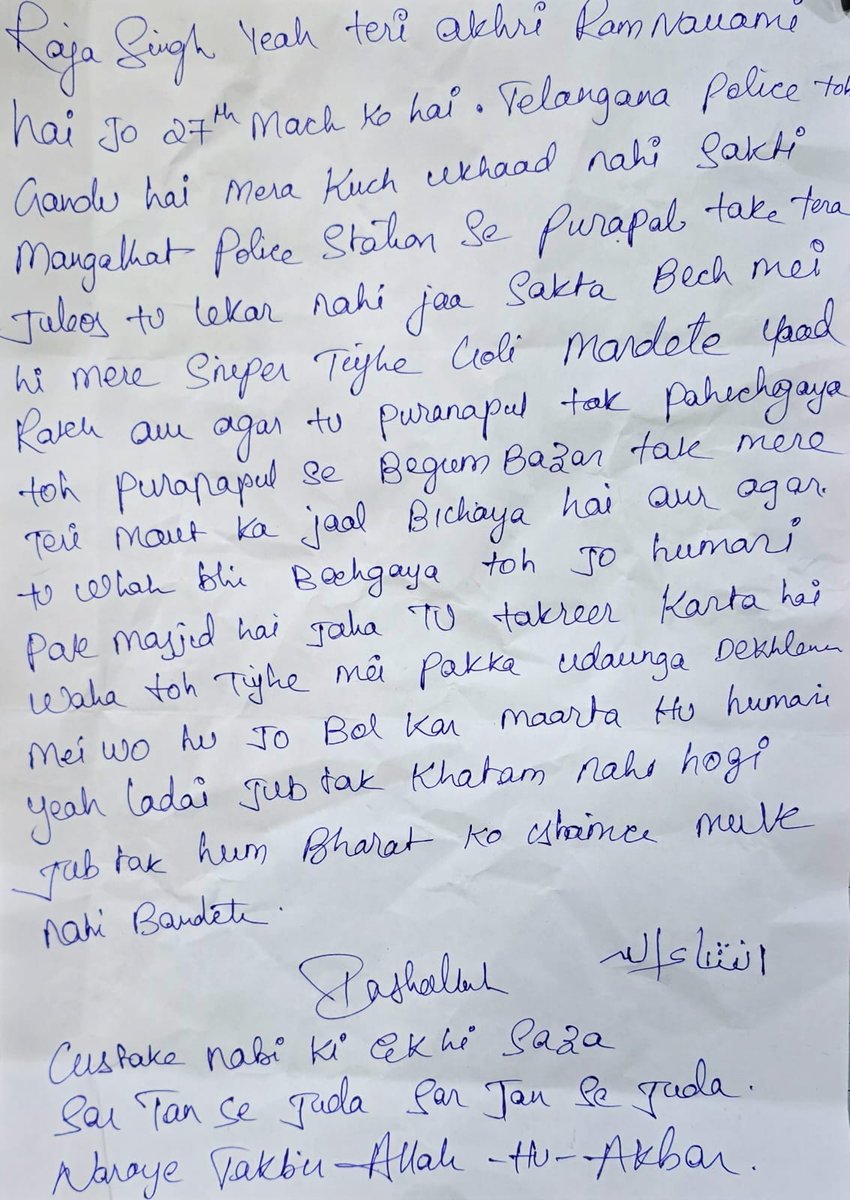 Raja Singh Yeah teri akhri Ram Navami
hai Jo 27th Mach ko hai. Telangana Police toh
Gandu hai mera kuch ukhaad nahi sakti
Mangalhat Police Station se Purapal take tera
Juloos tu lekar nahi jaa sakta Bech mei
hi mere Sniper Tujhe Goli mardete yaad
Rakh aur agar tu puranapul tak pahechgaya
toh puranapul se Begum Bazar tak mere
Teri maut ka jaal Bichaya hai aur agar.
tu whah bhi Bachgaya toh Jo humari
Pak masjid hai Jaha Tu takreer karta hai
waha toh Tujhe mei pakka udaunga Dekhlena
mei wo hu Jo Bol kar maarta Hu humari
yeah ladai Jub tak khatam nahi hogi
Jub tak hum Bharat ko mulk
nahi Bandete.
انشاءالله
Custake nabi ki ek hi saza
Sar Tan se Juda Sar Tan se Juda.
Naraye Takbir-Allah-Hu-Akbar.